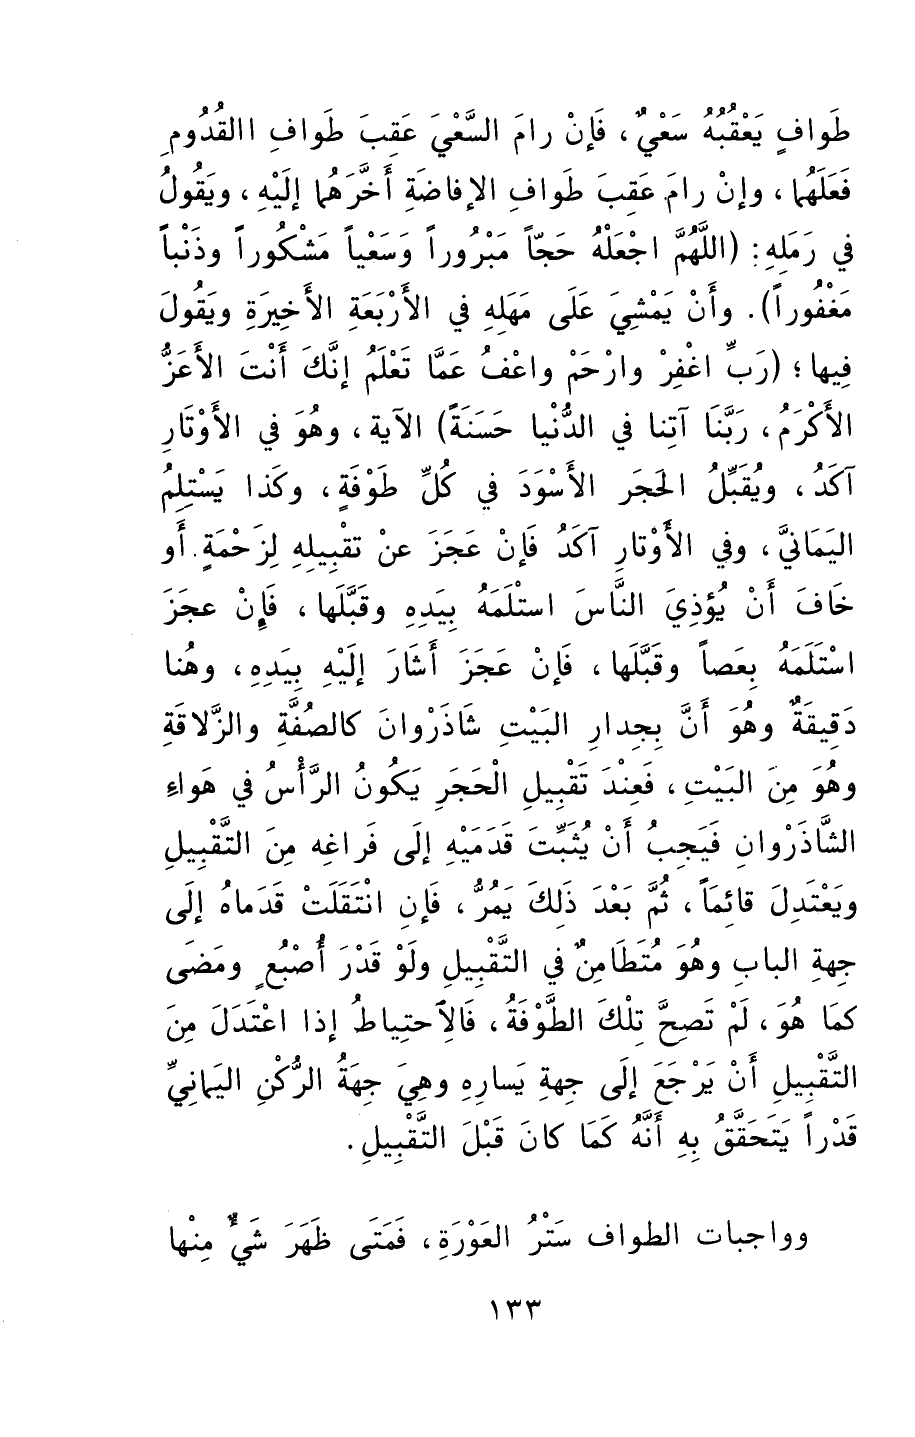 طَوافٍ يَعْقُبُهُ سَعْيٌ، فَإنْ رامَ السَّعْيَ عَقِبَ طَوافِ االقُدُومِ
فَعَلَهُما، وإنْ رامَ عَقِبَ طَوافِ الإفاضَةِ أَخَّرَهُما إلَيْهِ، ويَقُولُ
في رَمَلِهِ: (اللَّهُمَّ اجْعَلْهُ حَجّاً مَبْرُوراً وَسَعْياً مَشْكُوراً وذَنْباً
مَغْفُوراً). وأَنْ يَمْشِيَ عَلَى مَهَلِهِ في الأَرْبَعَةِ الأَخِيرَةِ ويَقُولَ
فِيها؛ (رَبِّ اغْفِرْ وارْحَمْ واعْفُ عَمَّا تَعْلَمُ إنَّكَ أَنْتَ الأَعَزُّ
الأَكْرَمُ، رَبَّنَا آتِنا في الدُّنْيا حَسَنَةً) الآية، وهُوَ في الأَوْتَارِ
آكَدُ، ويُقَبِّلُ الحَجَر الأَسْوَدَ في كُلِّ طَوْفَةٍ، وكَذا يَسْتِلِمُ
اليَمَانيَّ، وفي الأَوْتارِ آكَدُ فَإنْ عَجَزَ عنْ تقْبِيلِهِ لِزَحْمَةٍ. أَو
خَافَ أَنْ يُؤذِيَ النَّاسَ استْلَمَهُ بِيَدِهِ وقَبَّلَها، فَإنْ عجَزَ
اسْتَلَمَهُ بِعَصاً وقَبَّلَها، فَإنْ عَجَزَ أَشَارَ إلَيْهِ بِيَدِهِ، وهُنا
دَقِيقَةٌ وهُوَ أَنَّ بِجِدارِ البَيْتِ شَاذَرْوانَ كالصُفَّةِ والزَّلاقَةِ
وهُوَ مِنَ البَيْتِ، فَعِنْدَ تَقْبِيلِ الْحَجَرِ يَكُونُ الرَّأْسُ في هَواءِ
الشَّاذَرْوانِ فَيَجِبُ أَنْ يُثَبِّتَ قَدَمَيْهِ إلَى فَراغِه مِنَ التَّقْبِيلِ
ويَعْتَدِلَ قائِمَاً، ثُمَّ بَعْدَ ذَلِكَ يَمُرُّ، فَإن انْتَقَلَتْ قَدَماهُ إلَى
جِهةِ البابِ وهُوَ مُتَطَامِنٌ في التَّقْبِيلِ ولَوْ قَدْرَ أُصْبُعٍ ومَضَى
كمَا هُوَ، لَمْ تَصِحَّ تِلْكَ الطَّوْفَةُ، فَالِاَحتِياطُ إذا اعْتَدَلَ مِنَ
التَّقْبِيلِ أَنْ يَرْجَعَ إلَى جِهةِ يَسارِهِ وهِيَ جِهَةُ الرُّكْنِ اليَمانِيِّ
قَدْراً يَتَحَقَّقُ بِهِ أَنَّهُ كَمَا كانَ قَبْلَ التَّقْبِيلِ.
وواجبات الطواف سَتْرُ العَوْرَةِ، فَمَتَى ظَهَرَ شَيْءٌ مِنْها
١٣٣